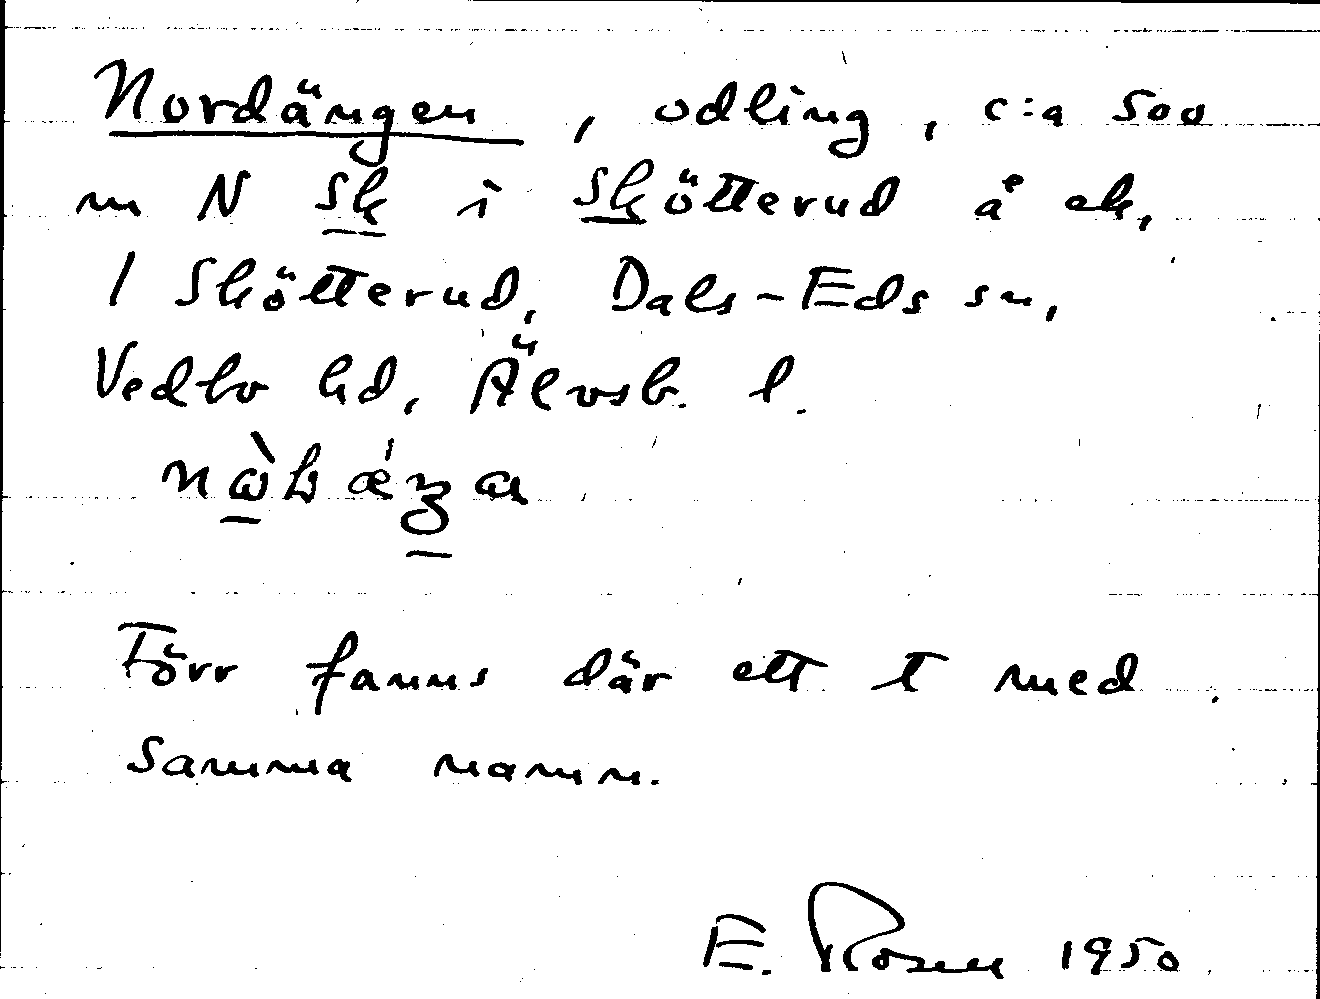 Nordängen, odling, c:a 500
m N Sk i Skötterud å ek,
1 Skötterud, Dals-Eds sn,
Vedbo hd, Älvsb. l.
Förr fanns där ett t med
samma namn.
E. Rosell 1950